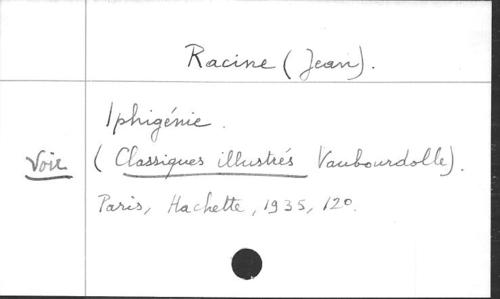 Racine (Jean).
Iphigénie.
Voir (Classiques illustrés Vaubourdolle).
Paris, Hachette, 1935, 12o.